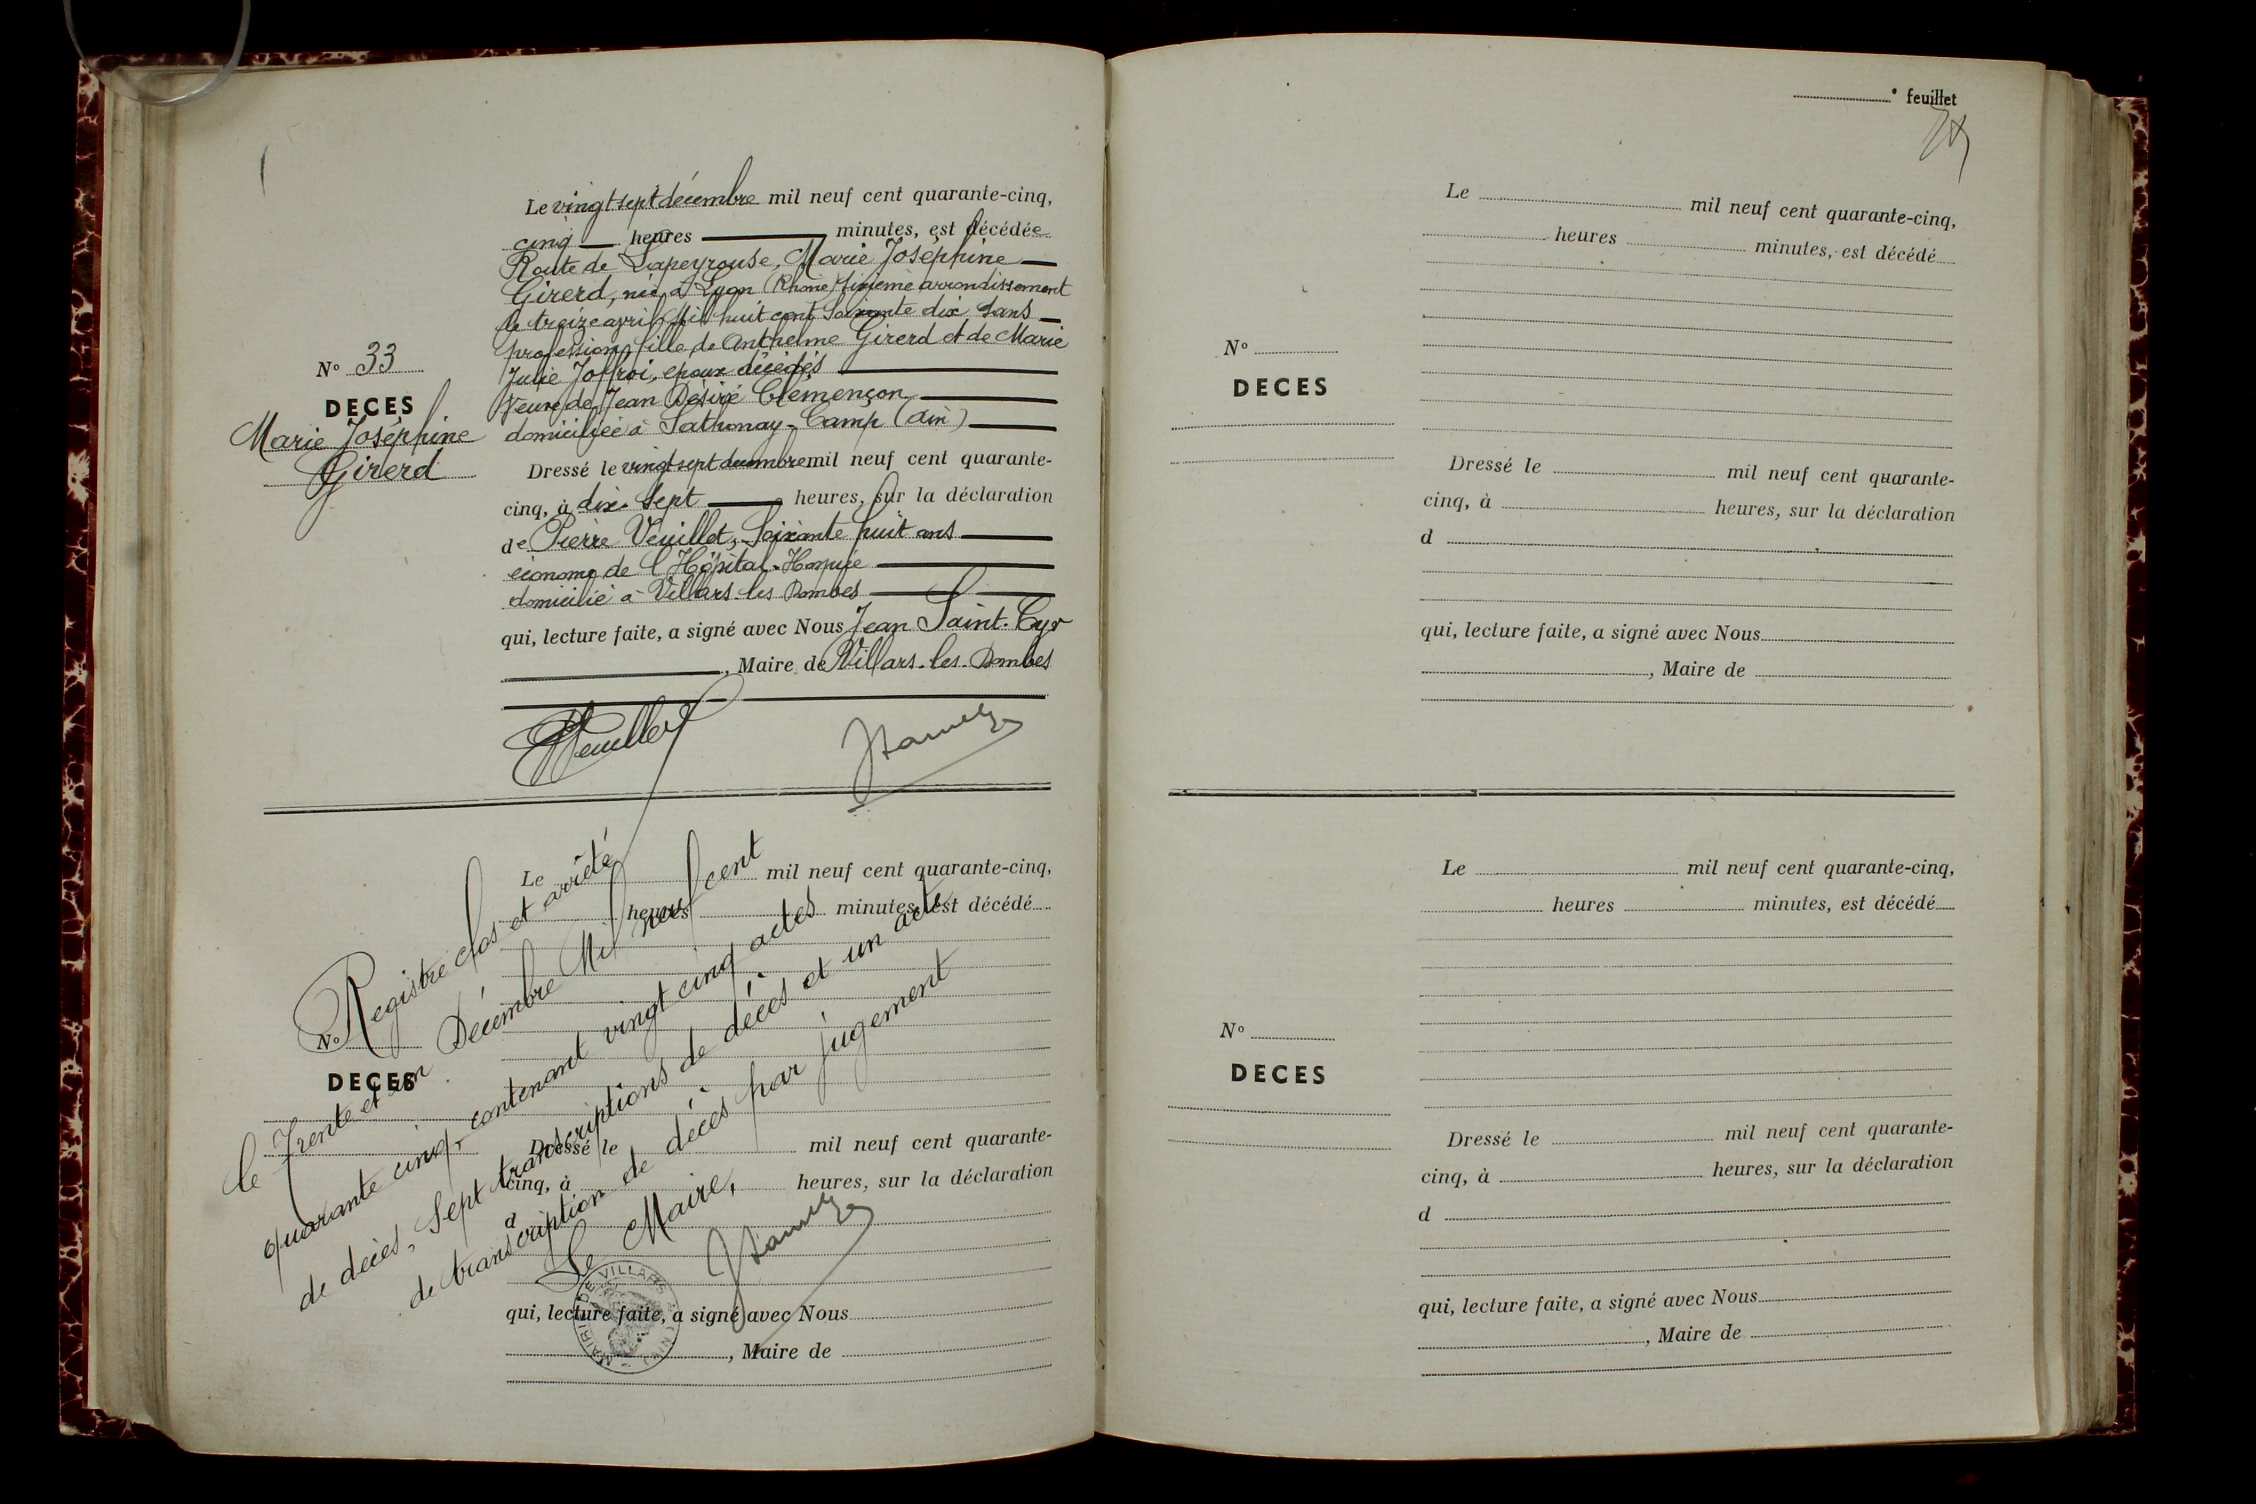 Le vingt sept décembre mil neuf cent quarante-cinq,
cinq heures minutes, est décédée
Route de Lapeyrouse, Marie Joséphine
Girerd, née à Lyon (Rhône) sixième arrondissement
le treize avril Mil huit cent Soixante dix, Sans
profession, fille de Anthelme Girerd et de Marie
Julie Joffroi, epoux décédés
Veuve de Jean Désiré Clémençon
domiciliée à Sathonay-Camp (Ain)
N° 33
DECES
Marie Joséphine
Girerd
Dressé le vingt sept decembre mil neuf cent quarante-
cinq, à dix-sept heures, sur la déclaration
de Pierre Veuillet, Soixante huit ans
économe de l'Hôpital-Hospice
domicilié à Villars-les Dombes
qui, lecture faite, a signé avec Nous Jean Saint-Cyr
, Maire de Villars-les-Dombes
Le mil neuf cent quarante-cinq,
heures minutes, est décédé
N°
DECES
Dressé le mil neuf cent quarante-
cinq, à heures, sur la déclaration
d
qui, lecture faite, a signé avec Nous
, Maire de
Registre clos et arrêté
le Trente et un Décembre Mil neuf cent
quarante cinq, contenant vingt cinq actes
de décès, Sept transcriptions de décès et un acte
de transcription de décès par jugement
Le Maire,
MAIRIE DE VILLARS (AIN)
feuillet
Le mil neuf cent quarante-cinq,
heures minutes, est décédé
N°
DECES
Dressé le mil neuf cent quarante-
cinq, à heures, sur la déclaration
d
qui, lecture faite, a signé avec Nous
, Maire de
Le mil neuf cent quarante-cinq,
heures minutes, est décédé
N°
DECES
Dressé le mil neuf cent quarante-
cinq, à heures, sur la déclaration
d
qui, lecture faite, a signé avec Nous
, Maire de